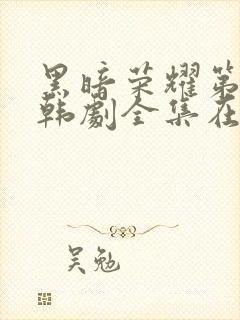 黑暗荣耀第
韩剧全集在
吴勉